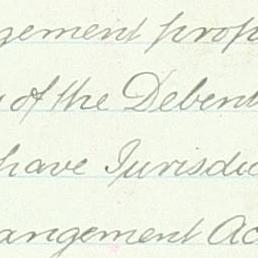 gement prop
of the Debent
have Jurisdic
angement Ac